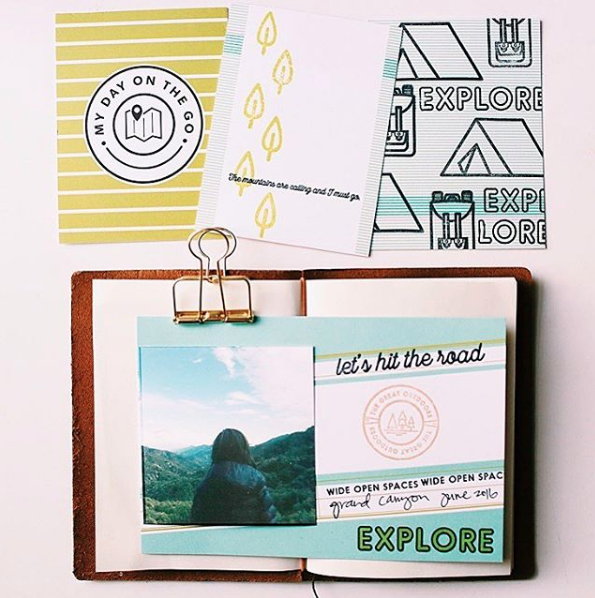 MY DAY ON THE GO
The mountains are calling and I must go.
EXPLORE
EXPL
LORE
let's hit the road
THE GREAT OUTDOORS THE GREAT OUTDOORS
WIDE OPEN SPACES WIDE OPEN SPAC
grand canyon june 2016
EXPLORE